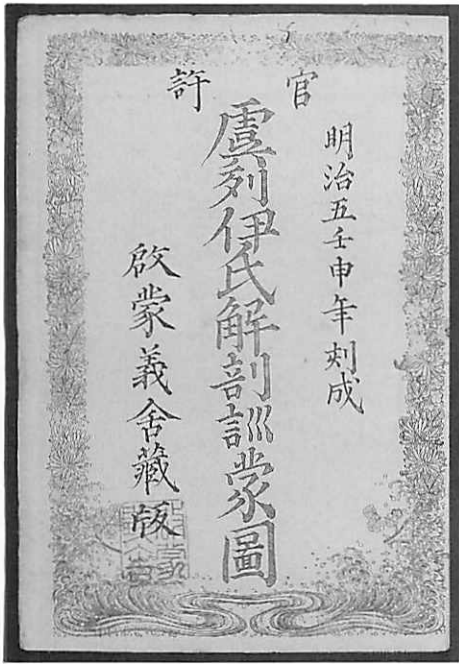 官許
明治五壬申年刻成
虞列伊氏解剖訓蒙圖
啓蒙義舍藏版